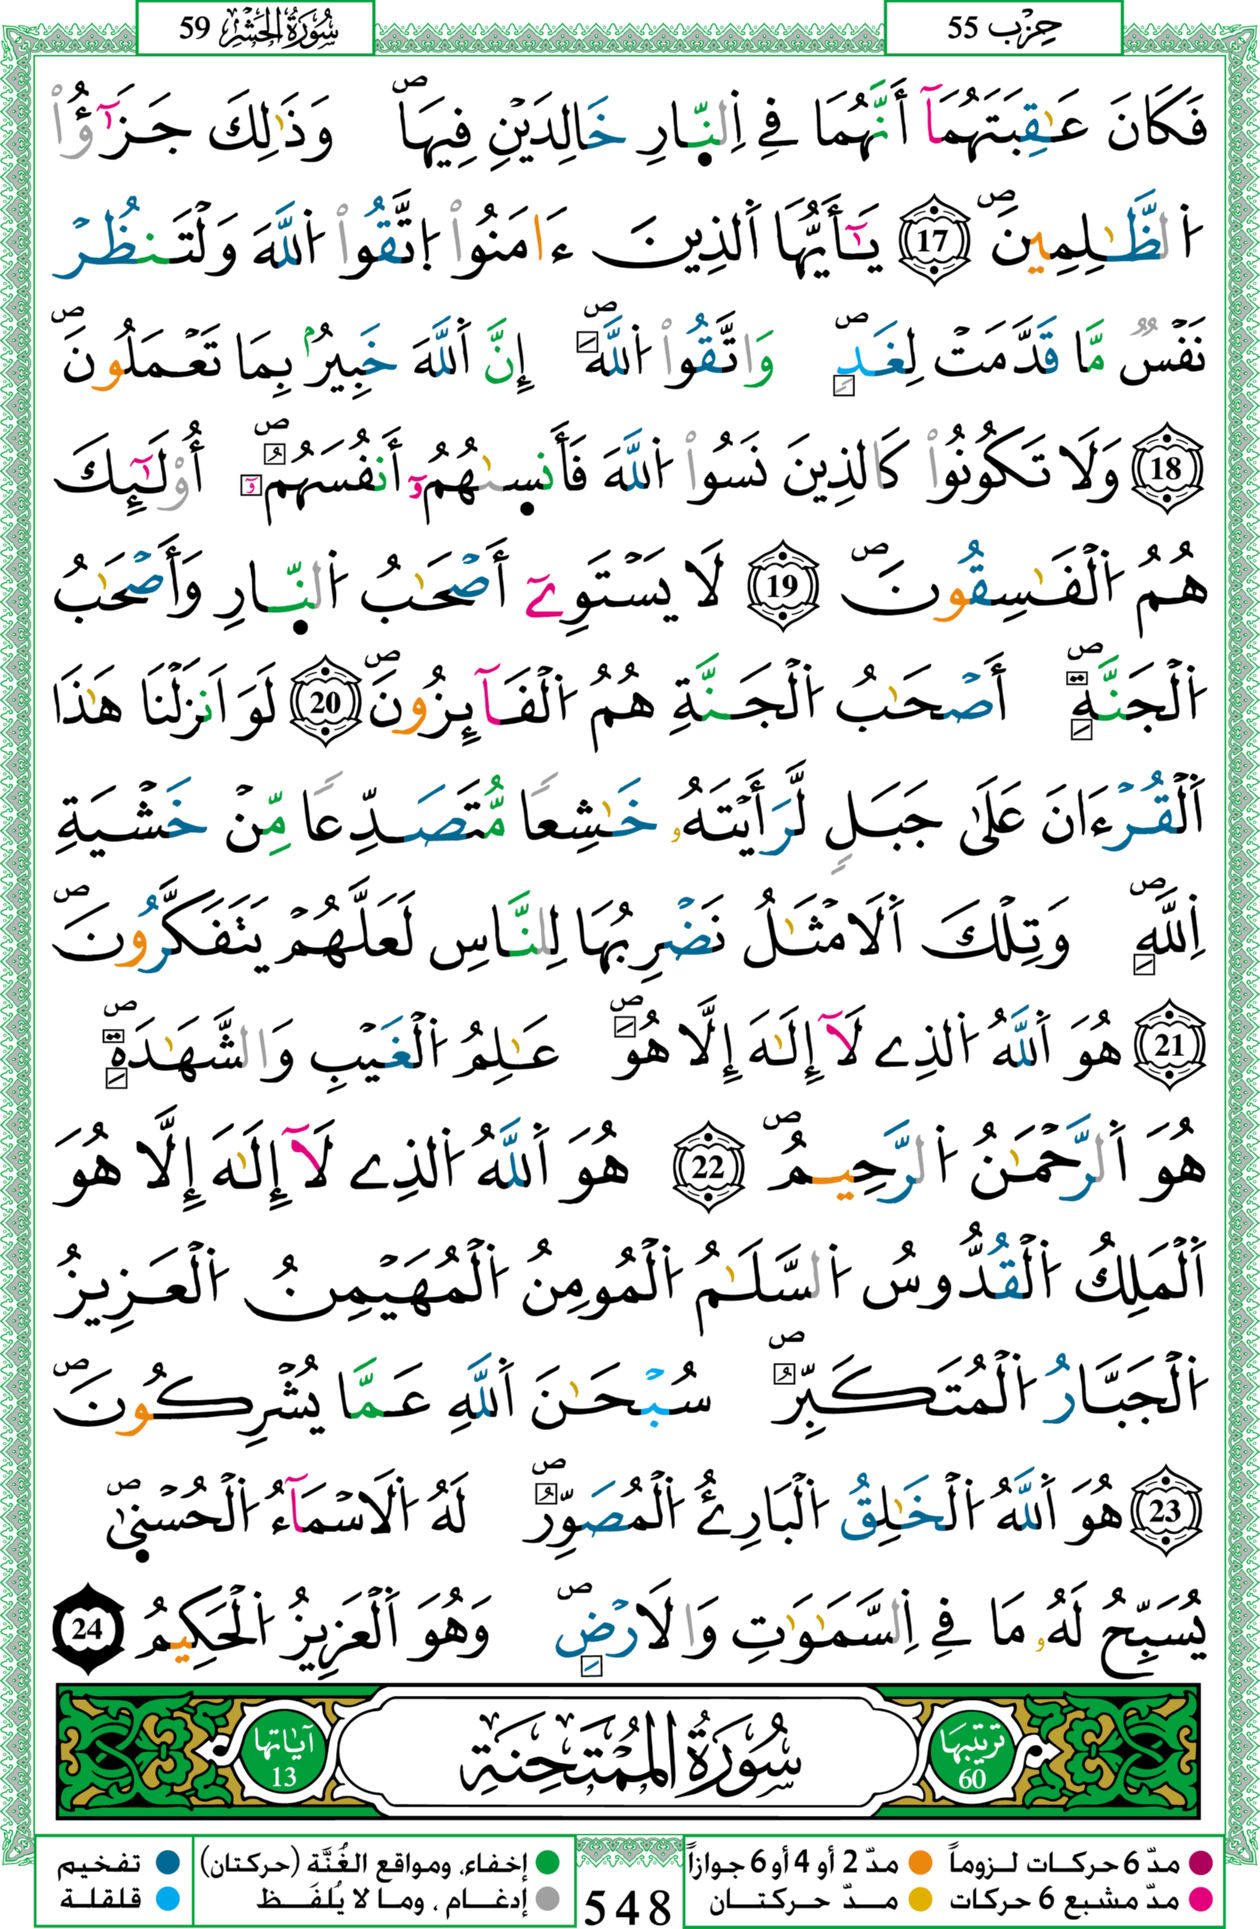 حِزْب 55
سُورَةُ الحَشْرِ 59
فَكَانَ عَٰقِبَتَهُمَآ أَنَّهُمَا فِے اِ۬لنّ۪ارِ خَالِدَيْنِ فِيهَاۖ وَذَٰلِكَ جَزَٰٓؤُاْ
اُ۬لظَّٰلِمِينَۖ 17 يَٰٓأَيُّهَا اَ۬لذِينَ ءَامَنُواْ اُ۪تَّقُواْ اُ۬للَّهَ وَلْتَنظُرْ
نَفْسٞ مَّا قَدَّمَتْ لِغَدٖۖ وَاتَّقُواْ اُ۬للَّهَۖ إِنَّ اَ۬للَّهَ خَبِيرُۢ بِمَا تَعْمَلُونَۖ
18 وَلَا تَكُونُواْ كَالذِينَ نَسُواْ اُ۬للَّهَ فَأَنس۪ىٰهُمُۥٓ أَنفُسَهُمُۥٓۖ أُوْلَٰٓئِكَ
هُمُ اُ۬لْفَٰسِقُونَۖ 19 لَا يَسْتَوِےٓ أَصْحَٰبُ اُ۬لنّ۪ارِ وَأَصْحَٰبُ
اُ۬لْجَنَّةِۖ أَصْحَٰبُ اُ۬لْجَنَّةِ هُمُ اُ۬لْفَآئِزُونَۖ 20 لَوَ اَنزَلْنَا هَٰذَا
اَ۬لْقُرْءَانَ عَلَىٰ جَبَلٖ لَّرَأَيْتَهُۥ خَٰشِعاٗ مُّتَصَدِّعاٗ مِّنْ خَشْيَةِ
اِ۬للَّهِۖ وَتِلْكَ اَ۬لَامْثَٰلُ نَضْرِبُهَا لِلنَّاسِ لَعَلَّهُمْ يَتَفَكَّرُونَۖ
21 هُوَ اَ۬للَّهُ اُ۬لذِے لَآ إِلَٰهَ إِلَّا هُوَۖ عَٰلِمُ اُ۬لْغَيْبِ وَالشَّهَٰدَةِۖ
هُوَ اَ۬لرَّحْمَٰنُ اُ۬لرَّحِيمُۖ 22 هُوَ اَ۬للَّهُ اُ۬لذِے لَآ إِلَٰهَ إِلَّا هُوَ
اَ۬لْمَلِكُ اُ۬لْقُدُّوسُ اُ۬لسَّلَٰمُ اُ۬لْمُومِنُ اُ۬لْمُهَيْمِنُ اُ۬لْعَزِيزُ
اُ۬لْجَبَّارُ اُ۬لْمُتَكَبِّرُۖ سُبْحَٰنَ اَ۬للَّهِ عَمَّا يُشْرِكُونَۖ
23 هُوَ اَ۬للَّهُ اُ۬لْخَٰلِقُ اُ۬لْبَارِئُ اُ۬لْمُصَوِّرُۖ لَهُ اُ۬لَاسْمَآءُ اُ۬لْحُسْن۪ىٰۖ
يُسَبِّحُ لَهُۥ مَا فِے اِ۬لسَّمَٰوَٰتِ وَالَارْضِۖ وَهُوَ اَ۬لْعَزِيزُ اُ۬لْحَكِيمُ 24
ترتيبها 60
سُورَةُ المُمْتَحِنَةِ
آياتها 13
مدّ 6 حركات لزوماً
مدّ 2 أو 4 أو 6 جوازاً
إخفاء، ومواقع الغُنَّة (حركتان)
تفخيم
مدّ مشبع 6 حركات
مدّ حركتان
إدغام ، وما لا يُلفَظ
قلقلة
548